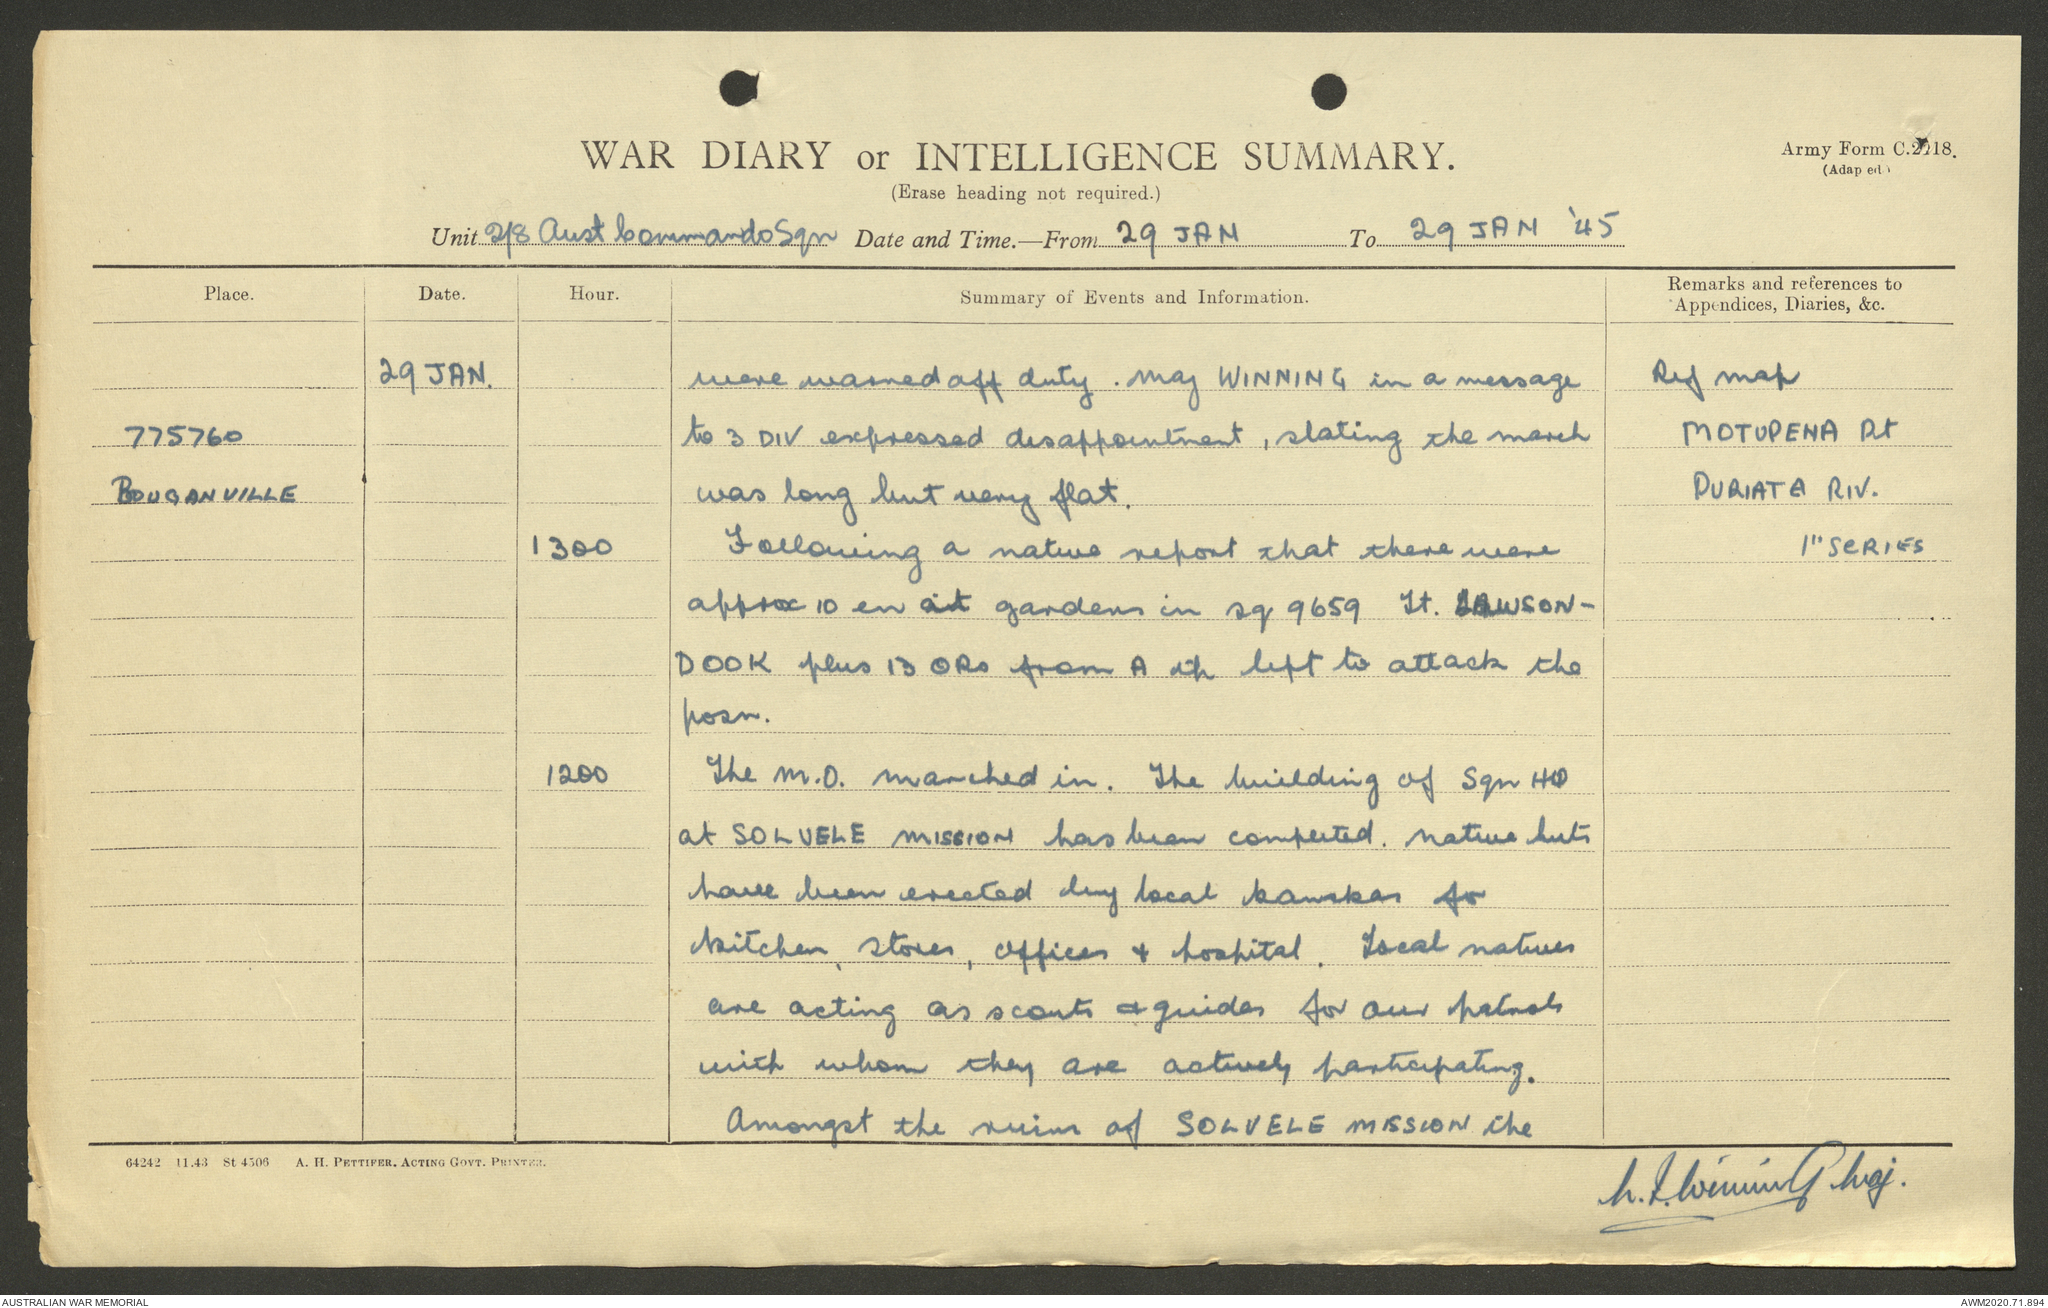 WAR DIARY or INTELLIGENCE SUMMARY.
Army Form C.2118.
(Erase heading not required.)
(Adap ed.)
Unit 2/8 Aust Commando Sqn Date and Time.—From 29 JAN To 29 JAN '45
Place. Date. Hour. Summary of Events and Information. Remarks and references to Appendices, Diaries, &c.
29 JAN. were warned off duty. Maj WINNING in a message Ref map
775760 to 3 DIV expressed disappointment, stating the march MOTUPENA Pt
BOUGANVILLE was long but very flat. PURIATA RIV.
1300 Following a native report that there were 1" SERIES
approx 10 en in gardens in sq 9659 Lt. LAWSON-
DOOK plus 13 ORs from A tp left to attack the
posn.
1200 The M.O. marched in. The building of Sqn HQ
at SOLVELE MISSION has been completed. Native huts
have been erected by local kanakas for
kitchen, stores, offices & hospital. Local natives
are acting as scouts & guides for our patrols
with whom they are actively participating.
Amongst the ruins of SOLVELE MISSION the
64242 11.43 St 4506 A. H. PETTIFER, ACTING GOVT. PRINTER.
N.I. Winning Maj.
AUSTRALIAN WAR MEMORIAL
AWM2020.71.894